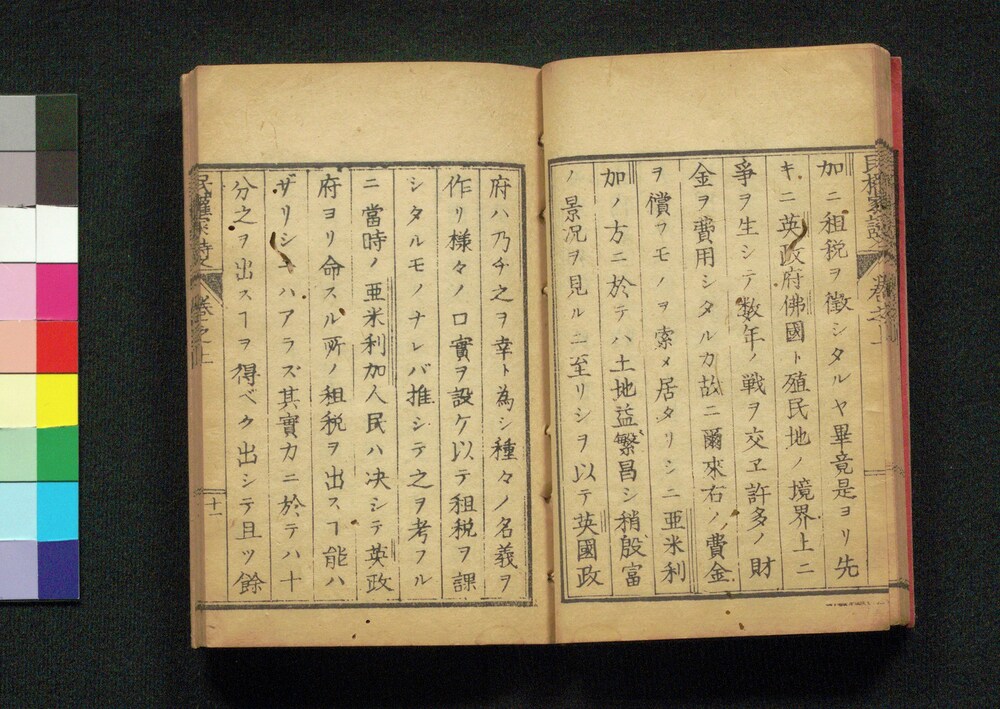 加ニ租税ヲ徴シタルヤ畢竟是ヨリ先
キニ英政府佛國ト殖民地ノ境界上ニ
爭ヲ生シテ数年ノ戦ヲ交ヱ許多ノ財
金ヲ費用シタルカ故ニ爾來右ノ費金
ヲ償フモノヲ索メ居タリシニ亜米利
加ノ方ニ於テハ土地益繁昌シ稍殷富
ノ景況ヲ見ルニ至リシヲ以テ英國政
府ハ乃チ之ヲ幸ト為シ種々ノ名義ヲ
作リ様々ノ口實ヲ設ケ以テ租税ヲ課
シタルモノナレバ推シテ之ヲ考フル
ニ當時ノ亜米利加人民ハ决シテ英政
府ヨリ命スル所ノ租税ヲ出スヿ能ハ
ザリシニハアラズ其實力ニ於テハ十
分之ヲ出スヿヲ得ベク出シテ且ツ餘
卷之上
十一